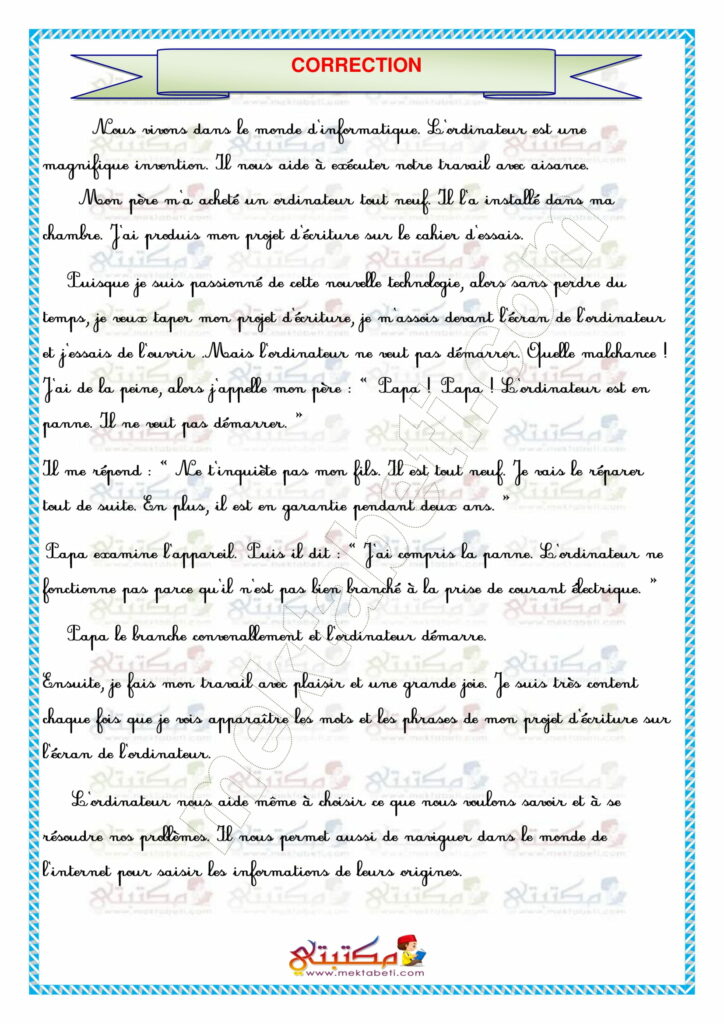 CORRECTION
Nous vivons dans le monde d'informatique. L'ordinateur est une
magnifique invention. Il nous aide à exécuter notre travail avec aisance.
Mon père m'a acheté un ordinateur tout neuf. Il l'a installé dans ma
chambre. J'ai produis mon projet d'écriture sur le cahier d'essais.
Puisque je suis passionné de cette nouvelle technologie, alors sans perdre du
temps, je veux taper mon projet d'écriture, je m'assois devant l'écran de l'ordinateur
et j'essais de l'ouvrir .Mais l'ordinateur ne veut pas démarrer. Quelle malchance !
J'ai de la peine, alors j'appelle mon père : " Papa ! Papa ! L'ordinateur est en
panne. Il ne veut pas démarrer. "
Il me répond : " Ne t'inquiète pas mon fils. Il est tout neuf. Je vais le réparer
tout de suite. En plus, il est en garantie pendant deux ans. "
Papa examine l'appareil. Puis il dit : " J'ai compris la panne. L'ordinateur ne
fonctionne pas parce qu'il n'est pas bien branché à la prise de courant électrique. "
Papa le branche convenallement et l'ordinateur démarre.
Ensuite, je fais mon travail avec plaisir et une grande joie. Je suis très content
chaque fois que je vois apparaître les mots et les phrases de mon projet d'écriture sur
l'écran de l'ordinateur.
L'ordinateur nous aide même à choisir ce que nous voulons savoir et à se
résoudre nos prollèmes. Il nous permet aussi de naviguer dans le monde de
l'internet pour saisir les informations de leurs origines.
mektabeti.com
مكتبتي
www.mektabeti.com